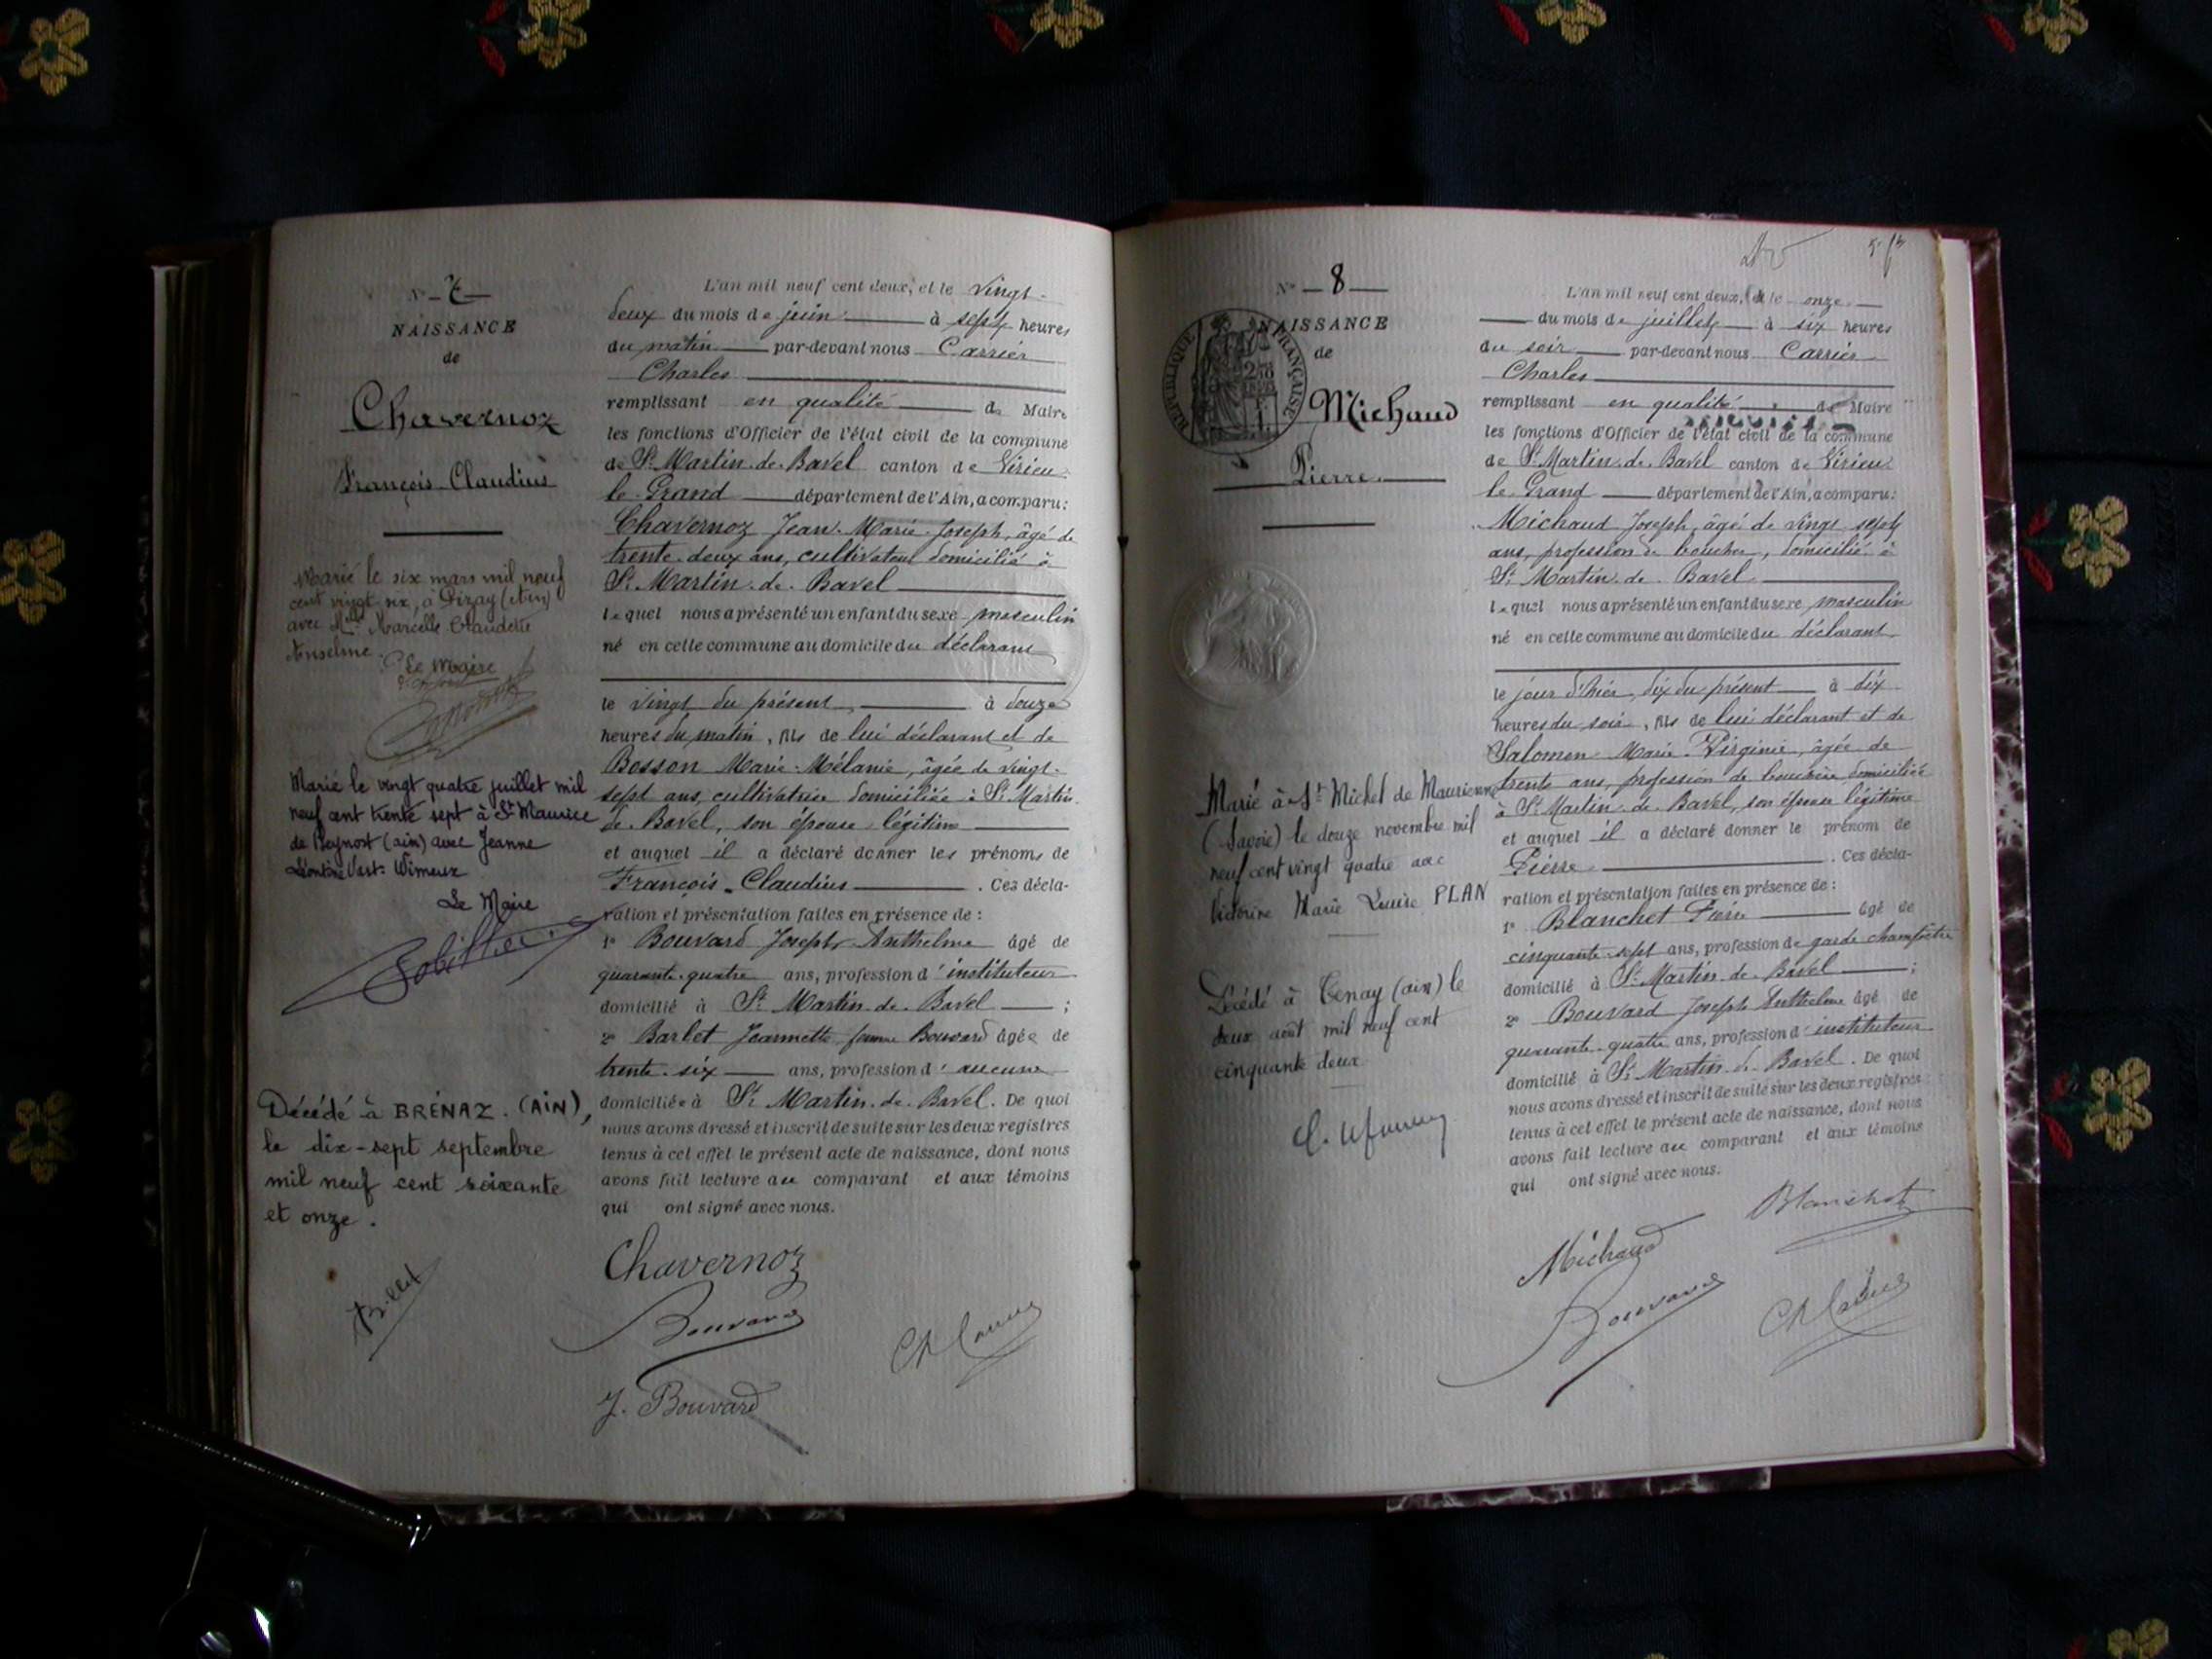 N° 7
NAISSANCE
de
Chavernoz
François-Claudius
Marié le six mars mil neuf
cent vingt-six, à Dizay (Ain)
avec Mlle Marcelle Claudette
Anselme.
Le Maire
Marié le vingt quatre juillet mil
neuf cent trente sept à St Maurice
de Beynost (ain) avec Jeanne
Léontine
Le Maire
Décédé à BRÉNAZ. (AIN),
le dix-sept septembre
mil neuf cent soixante
et onze.
Billet
L'an mil neuf cent deux, et le vingt-
deux du mois de juin à sept heures
du matin par-devant nous Carrier
Charles
remplissant en qualité de Maire
les fonctions d'Officier de l'état civil de la commune
de St Martin-de-Bavel canton de Virieu-
le-Grand département de l'Ain, a comparu:
Chavernoz Jean-Marie-Joseph, âgé de
trente-deux ans, cultivateur domicilié à
St Martin-de-Bavel
lequel nous a présenté un enfant du sexe masculin
né en cette commune au domicile du déclarant
le vingt du présent, à douze
heures du matin, fils de lui déclarant et de
Bosson Marie-Mélanie, âgée de vingt-
sept ans, cultivatrice domiciliée à St Martin-
de-Bavel, son épouse légitime
et auquel il a déclaré donner les prénoms de
François-Claudius . Ces décla-
ration et présentation faites en présence de :
1° Bouvard Joseph Anthelme âgé de
quarante-quatre ans, profession d'instituteur
domicilié à St Martin-de-Bavel ;
2° Barlet Jeannette femme Bouvard âgée de
trente-six ans, profession d'aucune
domiciliée à St Martin-de-Bavel. De quoi
nous avons dressé et inscrit de suite sur les deux registres
tenus à cet effet le présent acte de naissance, dont nous
avons fait lecture au comparant et aux témoins
qui ont signé avec nous.
Chavernoz
Bouvard
J. Bouvard
N° 8
NAISSANCE
de
RÉPUBLIQUE FRANÇAISE
Michaud
Pierre
Marié à St Michel de Maurienne
(Savoie) le douze novembre mil
neuf cent vingt quatre avec
Victorine Marie Louise PLAN
Décédé à Tenay (ain) le
deux août mil neuf cent
cinquante deux
L'an mil neuf cent deux, et le onze
du mois de juillet à six heures
du soir par-devant nous Carrier
Charles
remplissant en qualité de Maire
les fonctions d'Officier de l'état civil de la commune
de St Martin-de-Bavel canton de Virieu-
le-Grand département de l'Ain, a comparu:
Michaud Joseph, âgé de vingt-sept
ans, profession de boucher, domicilié à
St Martin-de-Bavel
lequel nous a présenté un enfant du sexe masculin
né en cette commune au domicile du déclarant
le jour d'hier, dix du présent à dix
heures du soir, fils de lui déclarant et de
Salomon Marie-Virginie, âgée de
trente ans, profession de bouchère, domiciliée
à St Martin-de-Bavel, son épouse légitime
et auquel il a déclaré donner le prénom de
Pierre . Ces décla-
ration et présentation faites en présence de :
1° Blanchet Pierre âgé de
cinquante-sept ans, profession de garde champêtre
domicilié à St Martin-de-Bavel ;
2° Bouvard Joseph Anthelme âgé de
quarante-quatre ans, profession d'instituteur
domicilié à St Martin-de-Bavel. De quoi
nous avons dressé et inscrit de suite sur les deux registres
tenus à cet effet le présent acte de naissance, dont nous
avons fait lecture au comparant et aux témoins
qui ont signé avec nous.
Michaud
Blanchet
Bouvard